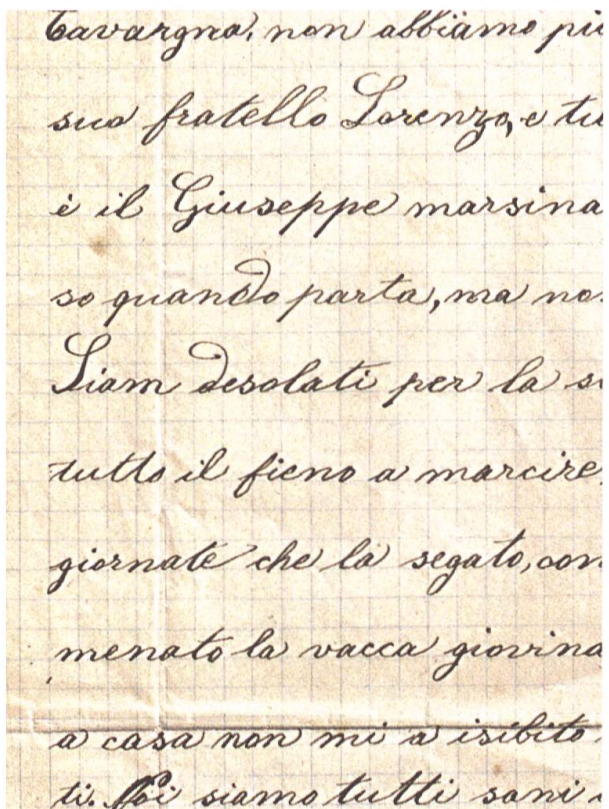 Cavargna, non abbiamo più
suo fratello Lorenzo, e tu
è il Giuseppe marsina
so quando parta, ma no
Siam desolati per la s
tutto il fieno a marcire
giornate che là segato, con
menato la vacca giovina
a casa non mi a isibito
ti. Noi siamo tutti sani